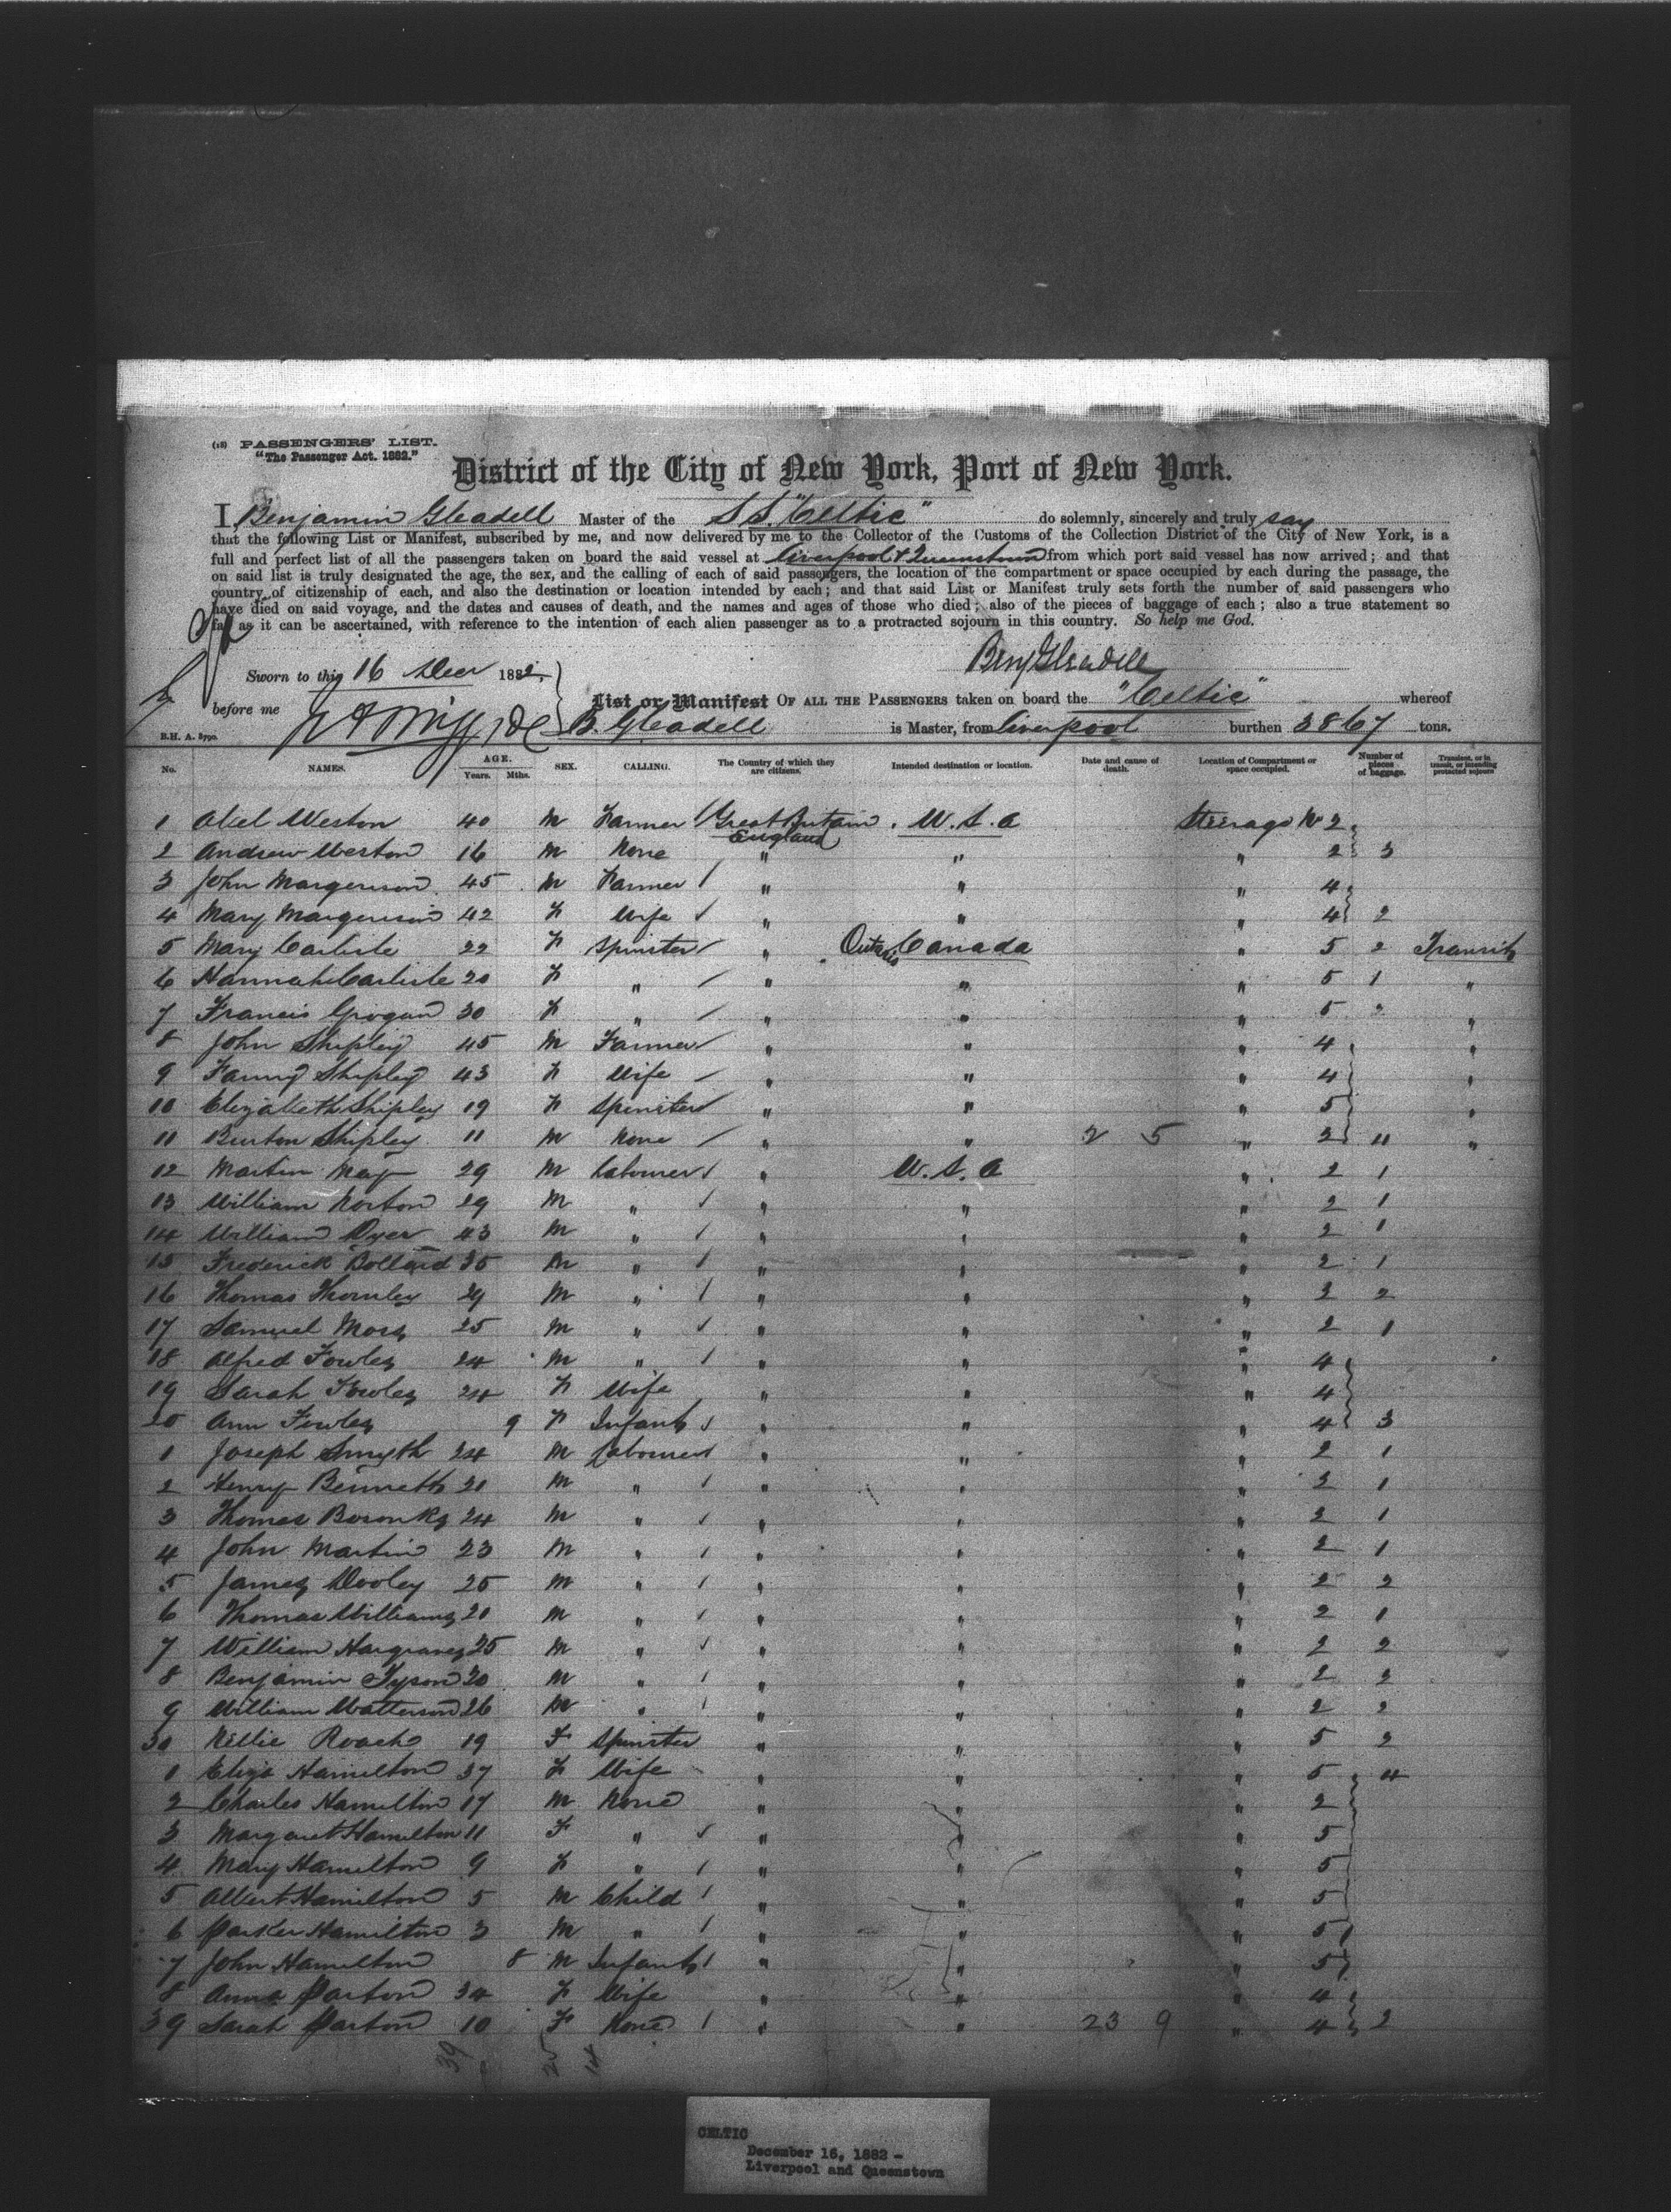 (12) PASSENGERS' LIST.
"The Passenger Act. 1882."
District of the City of New York, Port of New York.
I, Benjamin Gleadell Master of the S.S. "Celtic" do solemnly, sincerely and truly say
that the following List or Manifest, subscribed by me, and now delivered by me to the Collector of the Customs of the Collection District of the City of New York, is a
full and perfect list of all the passengers taken on board the said vessel at Liverpool & Queenstown from which port said vessel has now arrived; and that
on said list is truly designated the age, the sex, and the calling of each of said passengers, the location of the compartment or space occupied by each during the passage, the
country of citizenship of each, and also the destination or location intended by each; and that said List or Manifest truly sets forth the number of said passengers who
have died on said voyage, and the dates and causes of death, and the names and ages of those who died; also of the pieces of baggage of each; also a true statement so
far as it can be ascertained, with reference to the intention of each alien passenger as to a protracted sojourn in this country. So help me God.
Benj Gleadell
Sworn to this 16 Decr 1882,
before me
List or Manifest OF ALL THE PASSENGERS taken on board the "Celtic" whereof
B. Gleadell is Master, from Liverpool burthen 3867 tons.
B.H. A. 3790.
No. NAMES. AGE. Years. Mths. SEX. CALLING. The Country of which they are citizens. Intended destination or location. Date and cause of death. Location of Compartment or space occupied. Number of pieces of baggage. Transient, or in transit, or intending protracted sojourn
1 Abel Weston 40 M Farmer Great Britain England U.S.A Steerage No 2
2 Andrew Weston 16 M None " " " 2 3
3 John Margerison 45 M Farmer " " " 4
4 Mary Margerison 42 F Wife " " " 4 2
5 Mary Carlisle 22 F Spinster " Ontario Canada " 5 2 Transit
6 Hannah Carlisle 20 F " " " " 5 1 "
7 Francis Grogan 30 F " " " " 5 2 "
8 John Shipley 45 M Farmer " " " 4 "
9 Fanny Shipley 43 F Wife " " " 4 "
10 Elizabeth Shipley 19 F Spinster " " " 5 "
11 Burton Shipley 11 M None " " 2 5 " 2 4 "
12 Martin May 29 M Labourer " U.S.A " 2 1
13 William Norton 29 M " " " " 2 1
14 William Dyer 43 M " " " " 2 1
15 Frederick Bollard 35 M " " " " 2 1
16 Thomas Thornley 29 M " " " " 2 2
17 Samuel Moss 25 M " " " " 2 1
18 Alfred Fowles 24 M " " " " 4
19 Sarah Fowles 24 F Wife " " " 4
20 Ann Fowles 9 F Infant " " " 4 3
1 Joseph Smyth 24 M Labourer " " " 2 1
2 Henry Bennett 21 M " " " " 2 1
3 Thomas 24 M " " " " 2 1
4 John Martin 23 M " " " " 2 1
5 James Dooley 25 M " " " " 2 2
6 Thomas Williams 21 M " " " " 2 1
7 William Hargraves 25 M " " " " 2 2
8 Benjamin Tyson 20 M " " " " 2 2
9 William Watterson 26 M " " " " 2 2
30 Nellie Roach 19 F Spinster " " " 5 2
1 Eliza Hamilton 37 F Wife " " " 5 4
2 Charles Hamilton 17 M None " " " 2
3 Margaret Hamilton 11 F " " " " 5
4 Mary Hamilton 9 F " " " " 5
5 Albert Hamilton 5 M Child " " " 5
6 Parker Hamilton 3 M " " " " 5
7 John Hamilton 8 M Infant " " " 5
8 Anna Parton 34 F Wife " " " 4
39 Sarah Parton 10 F None " " 23 9 " 4 2
39 25 14
CELTIC
December 16, 1882 -
Liverpool and Queenstown